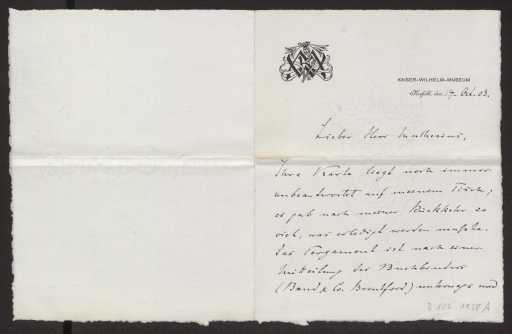 KAISER-WILHELM-MUSEUM
Krefeld, den 17. Oct. 03.
Lieber Herr Muthesius,
Ihre Karte liegt noch immer
unbeantwortet auf meinem Tisch;
es gab nach meiner Rückkehr so
viel, was erledigt werden musste.
Das Pergament ist nach einer
Mitteilung des Buchbinders
(Band & Co. Brentford) unterwegs und